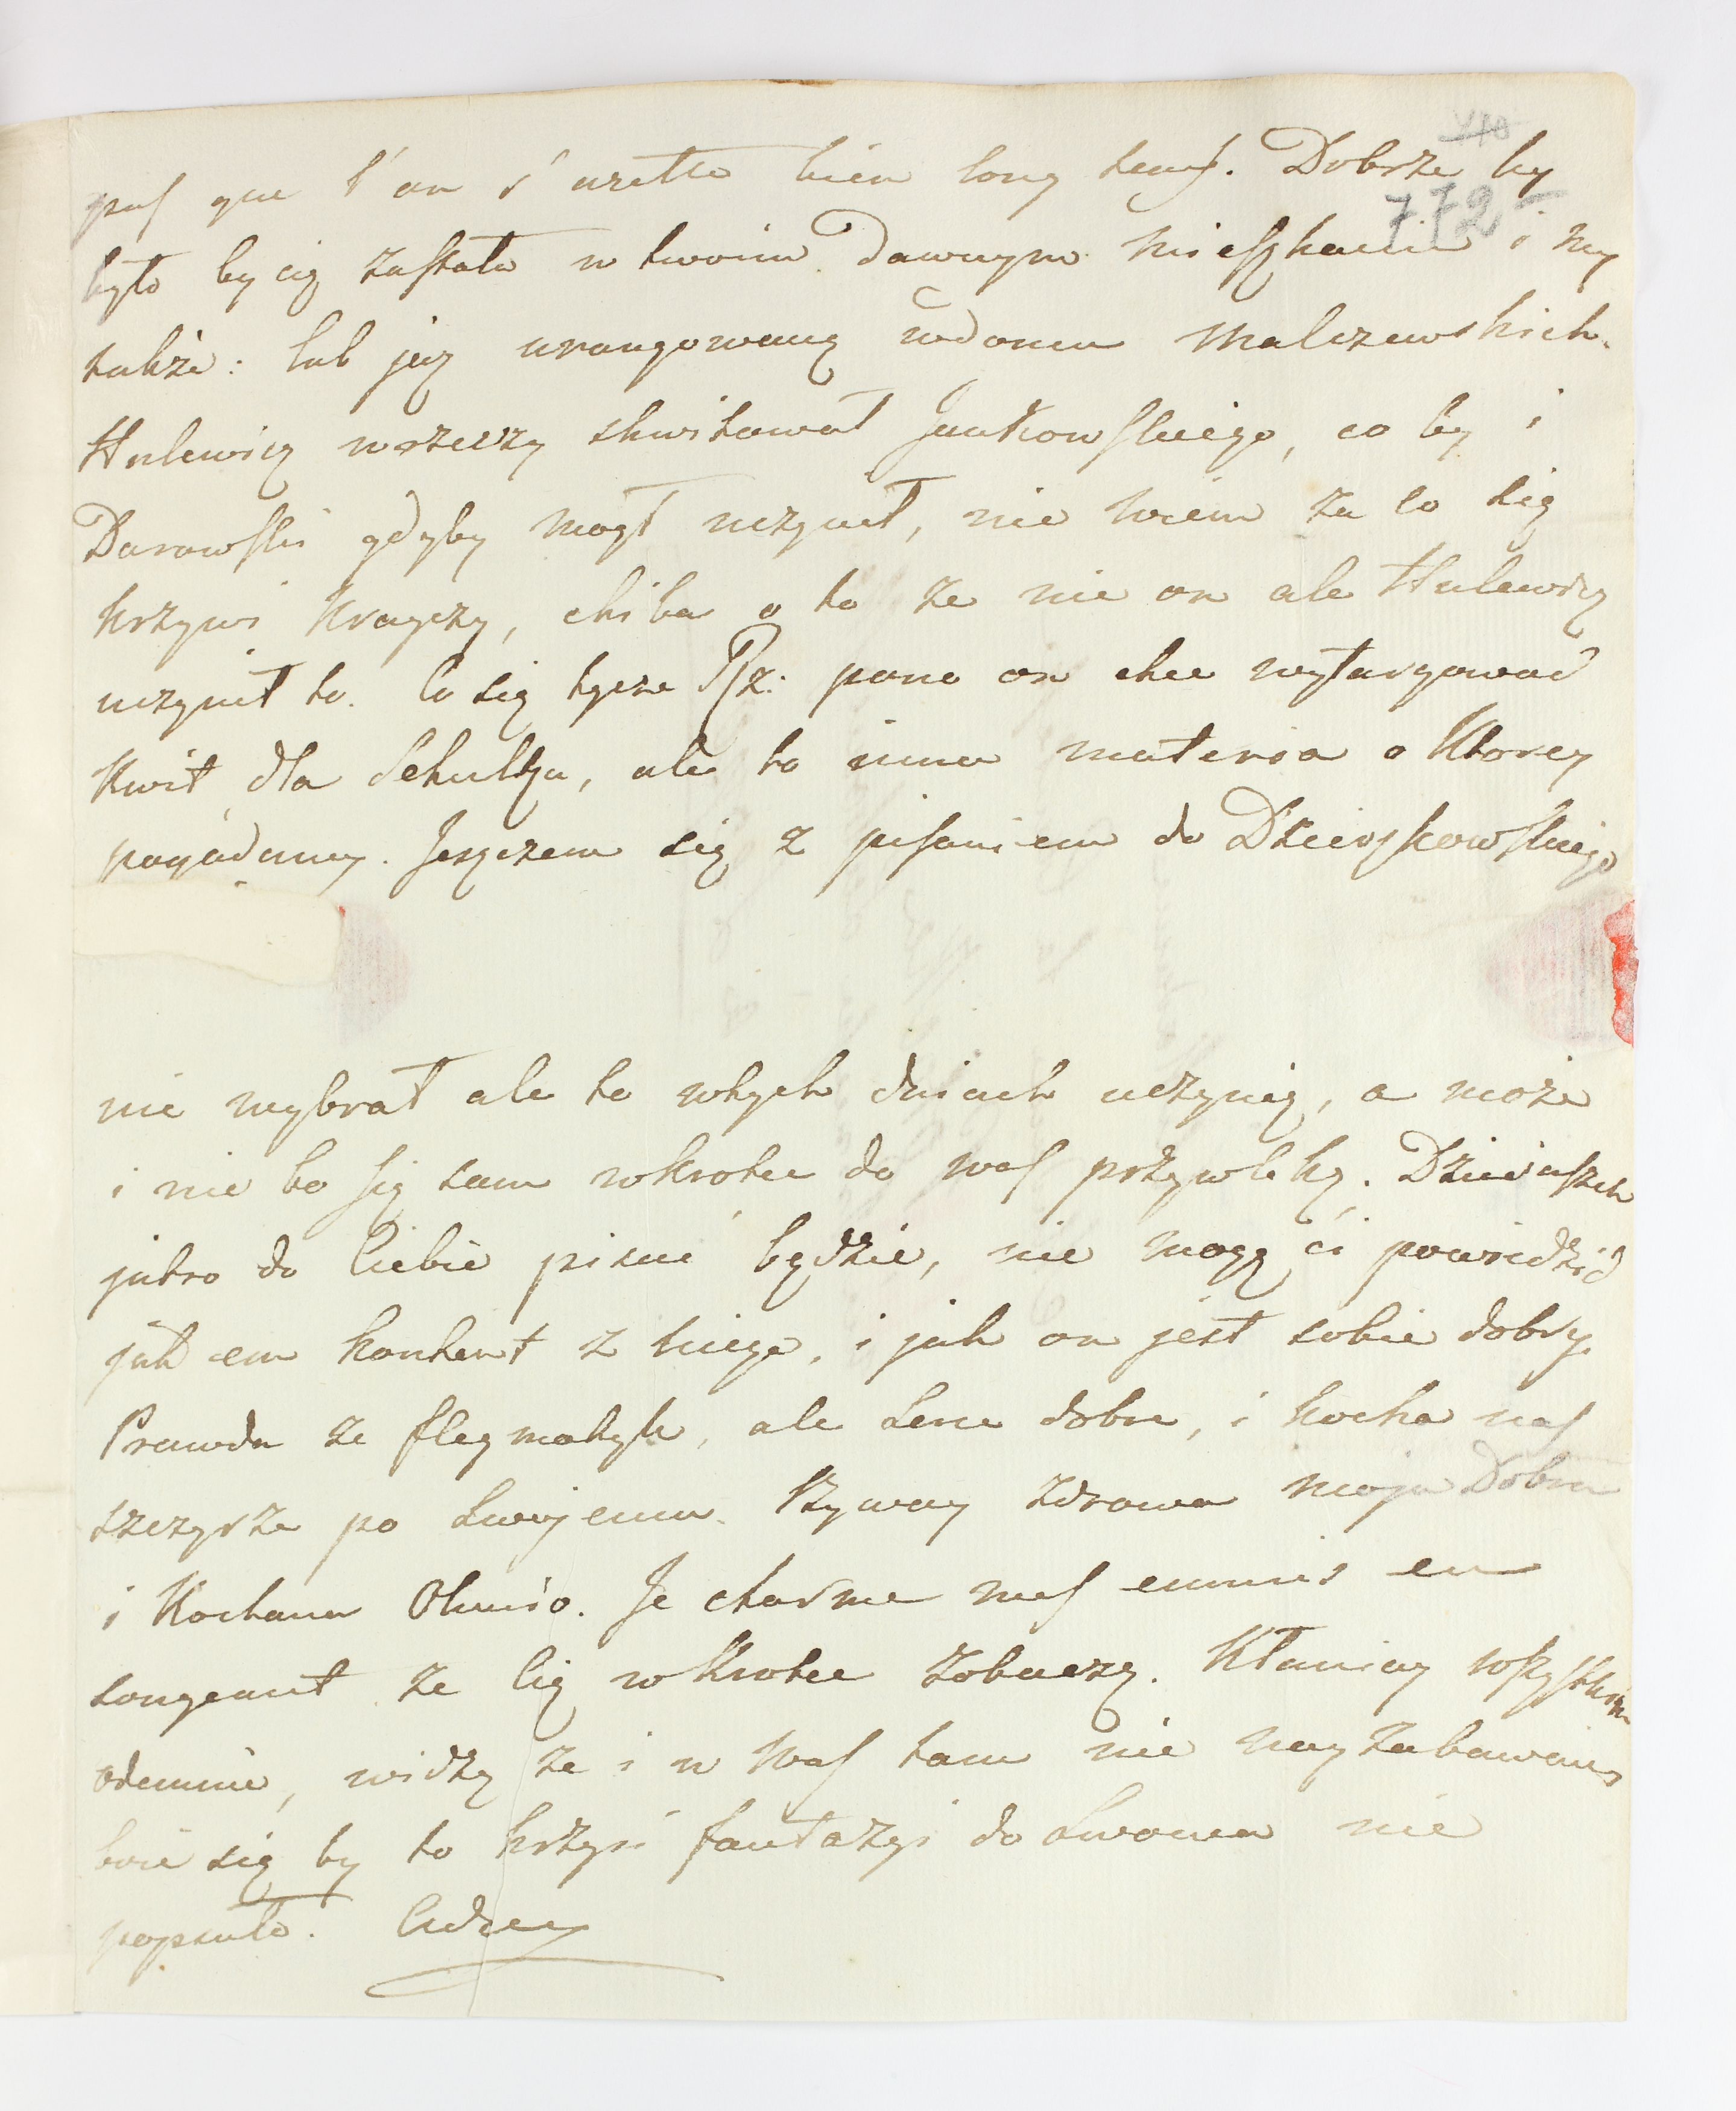 pas que l'on s'arette bien long tems. Dobrze by
772
było by cię zastała w twoim dawnym mieszkaniu i my
także: lub ją urangowaną wdomu Malczewskich.
Hulewicz wrzeczy skwitował Jankowskiego, co by i
Darowski gdyby mógł uczynił, nie wiem za co się
krzywi Krayczy, chiba o to że nie on ale Hulewicz
uczynił to. Co się tycze Rz: pono on chce wytargować
Kwit dla Schultza, ale to inna materia o Ktorey
pogadamy. Jeszczem się z pisaniem do Dzierzkowskiego
nie wybrał ale to wtych dniach uczynię, a może
i nie bo się sam wkrotce do was przywlekę. Dzieduszek
jutro do Ciebie pisać będzie, nie mogę ci powiedzić
jak em kontent z niego, i jak on jest sobie dobry.
Prawda że flegmatyk, ale Serce dobre, i kocha nas
szczyrze po Swojemu. Bywaj zdrowa moja Dobra
i Kochana Olunio. Je charme mes ennuis en
songeant że Cię wKrotce zobaczę. Kłaniay wszystkim
odemnie, widzę że i u Was tam nie nayzabawniey
boie się by to krzysi fantazyi do Lwowa nie
popsuło.